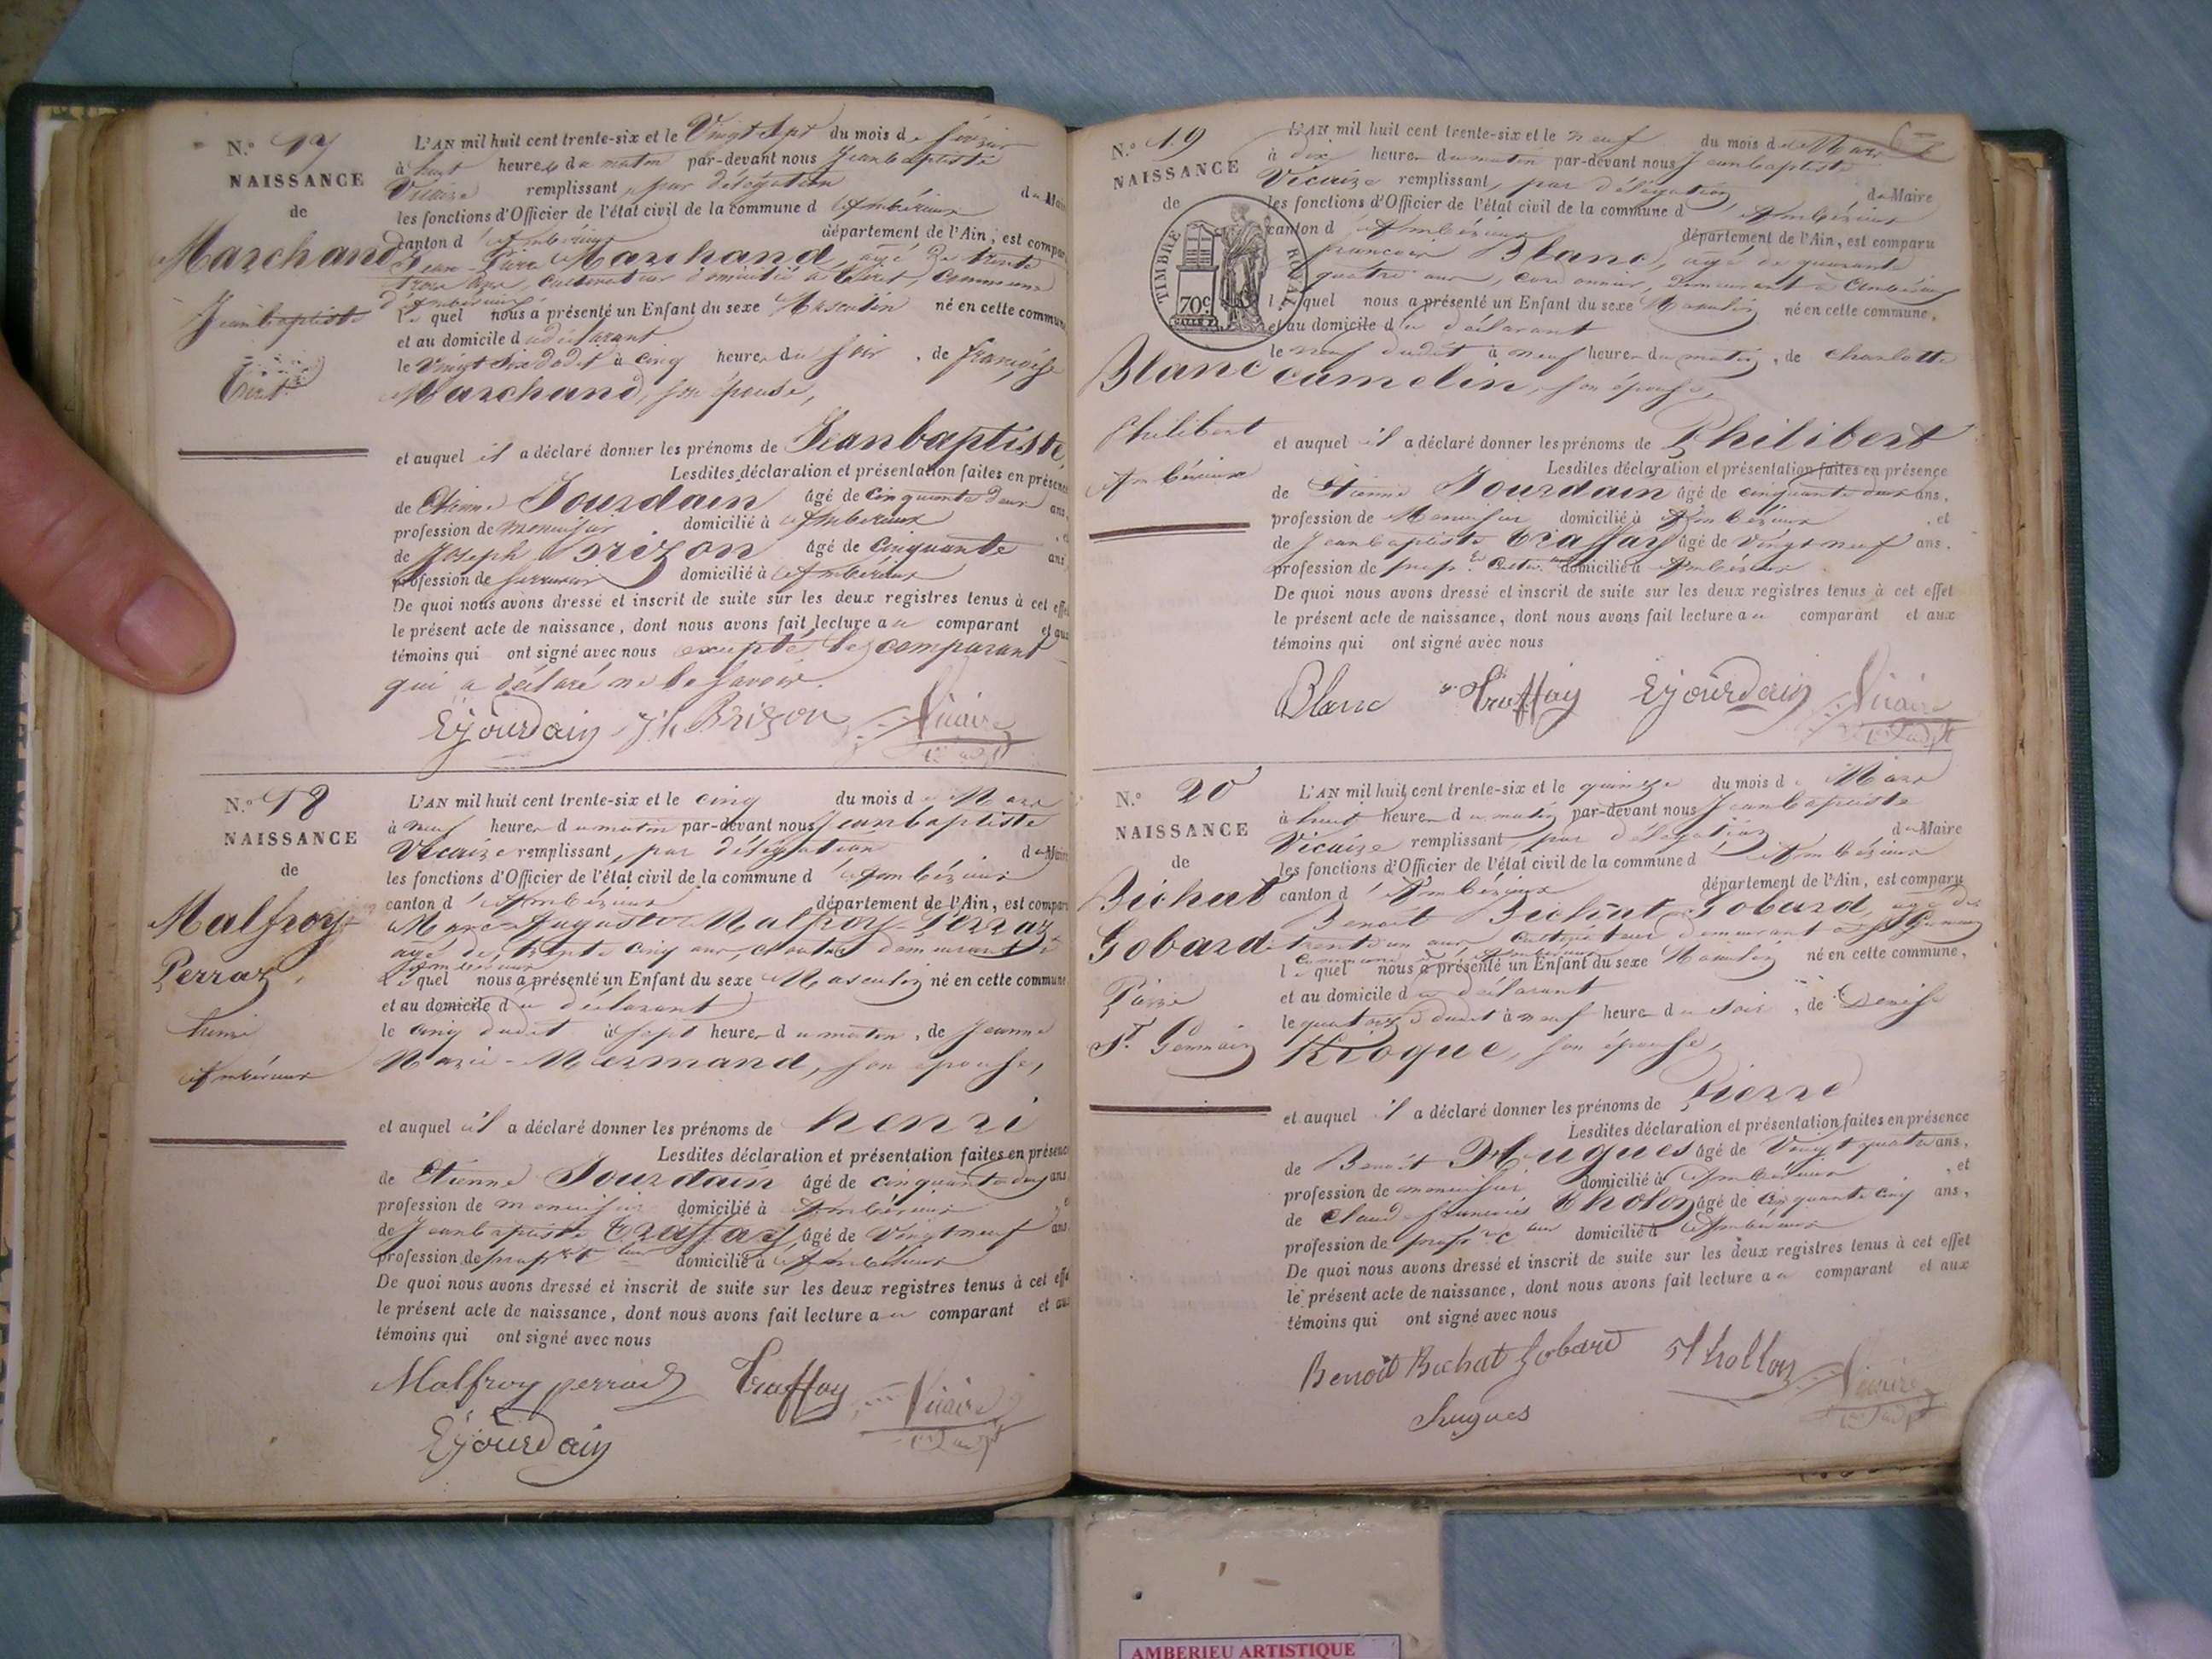 N.º 17
NAISSANCE
de
Marchand
Jeanbaptiste
Tiret
L'AN mil huit cent trente-six et le Vingt Sept du mois de février
à huit heures du matin par-devant nous Jeanbaptiste
Vicaire remplissant, par délégation du Maire
les fonctions d'Officier de l'état civil de la commune d'Ambérieux
canton d'Ambérieux département de l'Ain, est comparu
Jean-Pierre Marchand, agé de trente
trois ans, cultivateur domicilié à Tiret, commune
d'Ambérieux
lequel nous a présenté un Enfant du sexe Masculin né en cette commune
et au domicile du déclarant
le Vingt Six dudit à cinq heures du soir, de françoise
Marchand, son épouse,
et auquel il a déclaré donner les prénoms de Jeanbaptiste,
Lesdites déclaration et présentation faites en présence
de Etienne Jourdain âgé de cinquante deux ans,
profession de menuisier domicilié à Ambérieux, et
de Joseph Brizon âgé de cinquante ans
profession de serrurier domicilié à Ambérieux
De quoi nous avons dressé et inscrit de suite sur les deux registres tenus à cet effet
le présent acte de naissance, dont nous avons fait lecture au comparant et aux
témoins qui ont signé avec nous excepté le comparant
qui a déclaré ne le savoir.
Ejourdain Jh Brizon Vicaire
N.º 18
NAISSANCE
de
Malfroy-
Perraz,
henri
Ambérieux
L'AN mil huit cent trente-six et le cinq du mois de Mars
à neuf heures du matin par-devant nous Jeanbaptiste
Vicaire remplissant, par délégation du Maire
les fonctions d'Officier de l'état civil de la commune d'Ambérieux
canton d'Ambérieux département de l'Ain, est comparu
Marc-Augustin Malfroy-Perraz
agé de trente cinq ans, demeurant à
Ambérieux
lequel nous a présenté un Enfant du sexe Masculin né en cette commune
et au domicile du déclarant
le cinq dudit à sept heures du matin, de Jeanne
Marie-Mermand, son épouse,
et auquel il a déclaré donner les prénoms de henri
Lesdites déclaration et présentation faites en présence
de Etienne Jourdain âgé de cinquante deux ans
profession de menuisier domicilié à Ambérieux
de Jeanbaptiste Traffay, âgé de Vingt neuf ans
profession de domicilié à Ambérieux
De quoi nous avons dressé et inscrit de suite sur les deux registres tenus à cet effet
le présent acte de naissance, dont nous avons fait lecture au comparant et aux
témoins qui ont signé avec nous
Malfroy perraz Traffay Vicaire
Ejourdain
N.º 19
NAISSANCE
de
TIMBRE ROYAL
70c
Blanc
Philibert
Ambérieux
L'AN mil huit cent trente-six et le neuf du mois de Mars
à dix heures du matin par-devant nous Jeanbaptiste
Vicaire remplissant, par délégation du Maire
les fonctions d'Officier de l'état civil de la commune d'Ambérieux
canton d'Ambérieux département de l'Ain, est comparu
françois Blanc, agé de quarante
quatre ans, cordonnier, demeurant à Ambérieux
lequel nous a présenté un Enfant du sexe Masculin né en cette commune,
et au domicile du déclarant
le neuf dudit à neuf heures du matin, de charlotte
camelin, son épouse,
et auquel il a déclaré donner les prénoms de Philibert
Lesdites déclaration et présentation faites en présence
de Etienne Jourdain âgé de cinquante deux ans,
profession de Menuisier domicilié à Ambérieux, et
de Jeanbaptiste Traffay âgé de Vingt neuf ans.
profession de domicilié à Ambérieux
De quoi nous avons dressé et inscrit de suite sur les deux registres tenus à cet effet
le présent acte de naissance, dont nous avons fait lecture au comparant et aux
témoins qui ont signé avec nous
Blanc Traffay Ejourdain Vicaire
N.º 20
NAISSANCE
de
Bichat
Gobard
Pierre
St. Germain
L'AN mil huit cent trente-six et le quinze du mois de Mars
à huit heures du matin par-devant nous Jeanbaptiste
Vicaire remplissant, par délégation du Maire
les fonctions d'Officier de l'état civil de la commune d'Ambérieux
canton d'Ambérieux département de l'Ain, est comparu
Benoit Bichat Gobard, agé de
trente un ans, cultivateur demeurant à St. Germain
commune d'Ambérieux
lequel nous a présenté un Enfant du sexe Masculin né en cette commune,
et au domicile du déclarant
le quatorze dudit à neuf heures du soir, de Denise
, son épouse,
et auquel il a déclaré donner les prénoms de Pierre
Lesdites déclaration et présentation faites en présence
de Benoit Hugues âgé de Vingt quatre ans,
profession de menuisier domicilié à Ambérieux, et
de Claude françois Tholon âgé de cinquante cinq ans,
profession de domicilié à Ambérieux
De quoi nous avons dressé et inscrit de suite sur les deux registres tenus à cet effet
le présent acte de naissance, dont nous avons fait lecture au comparant et aux
témoins qui ont signé avec nous
Benoit Bichat Gobard Thollon Vicaire
hugues
AMBERIEU ARTISTIQUE